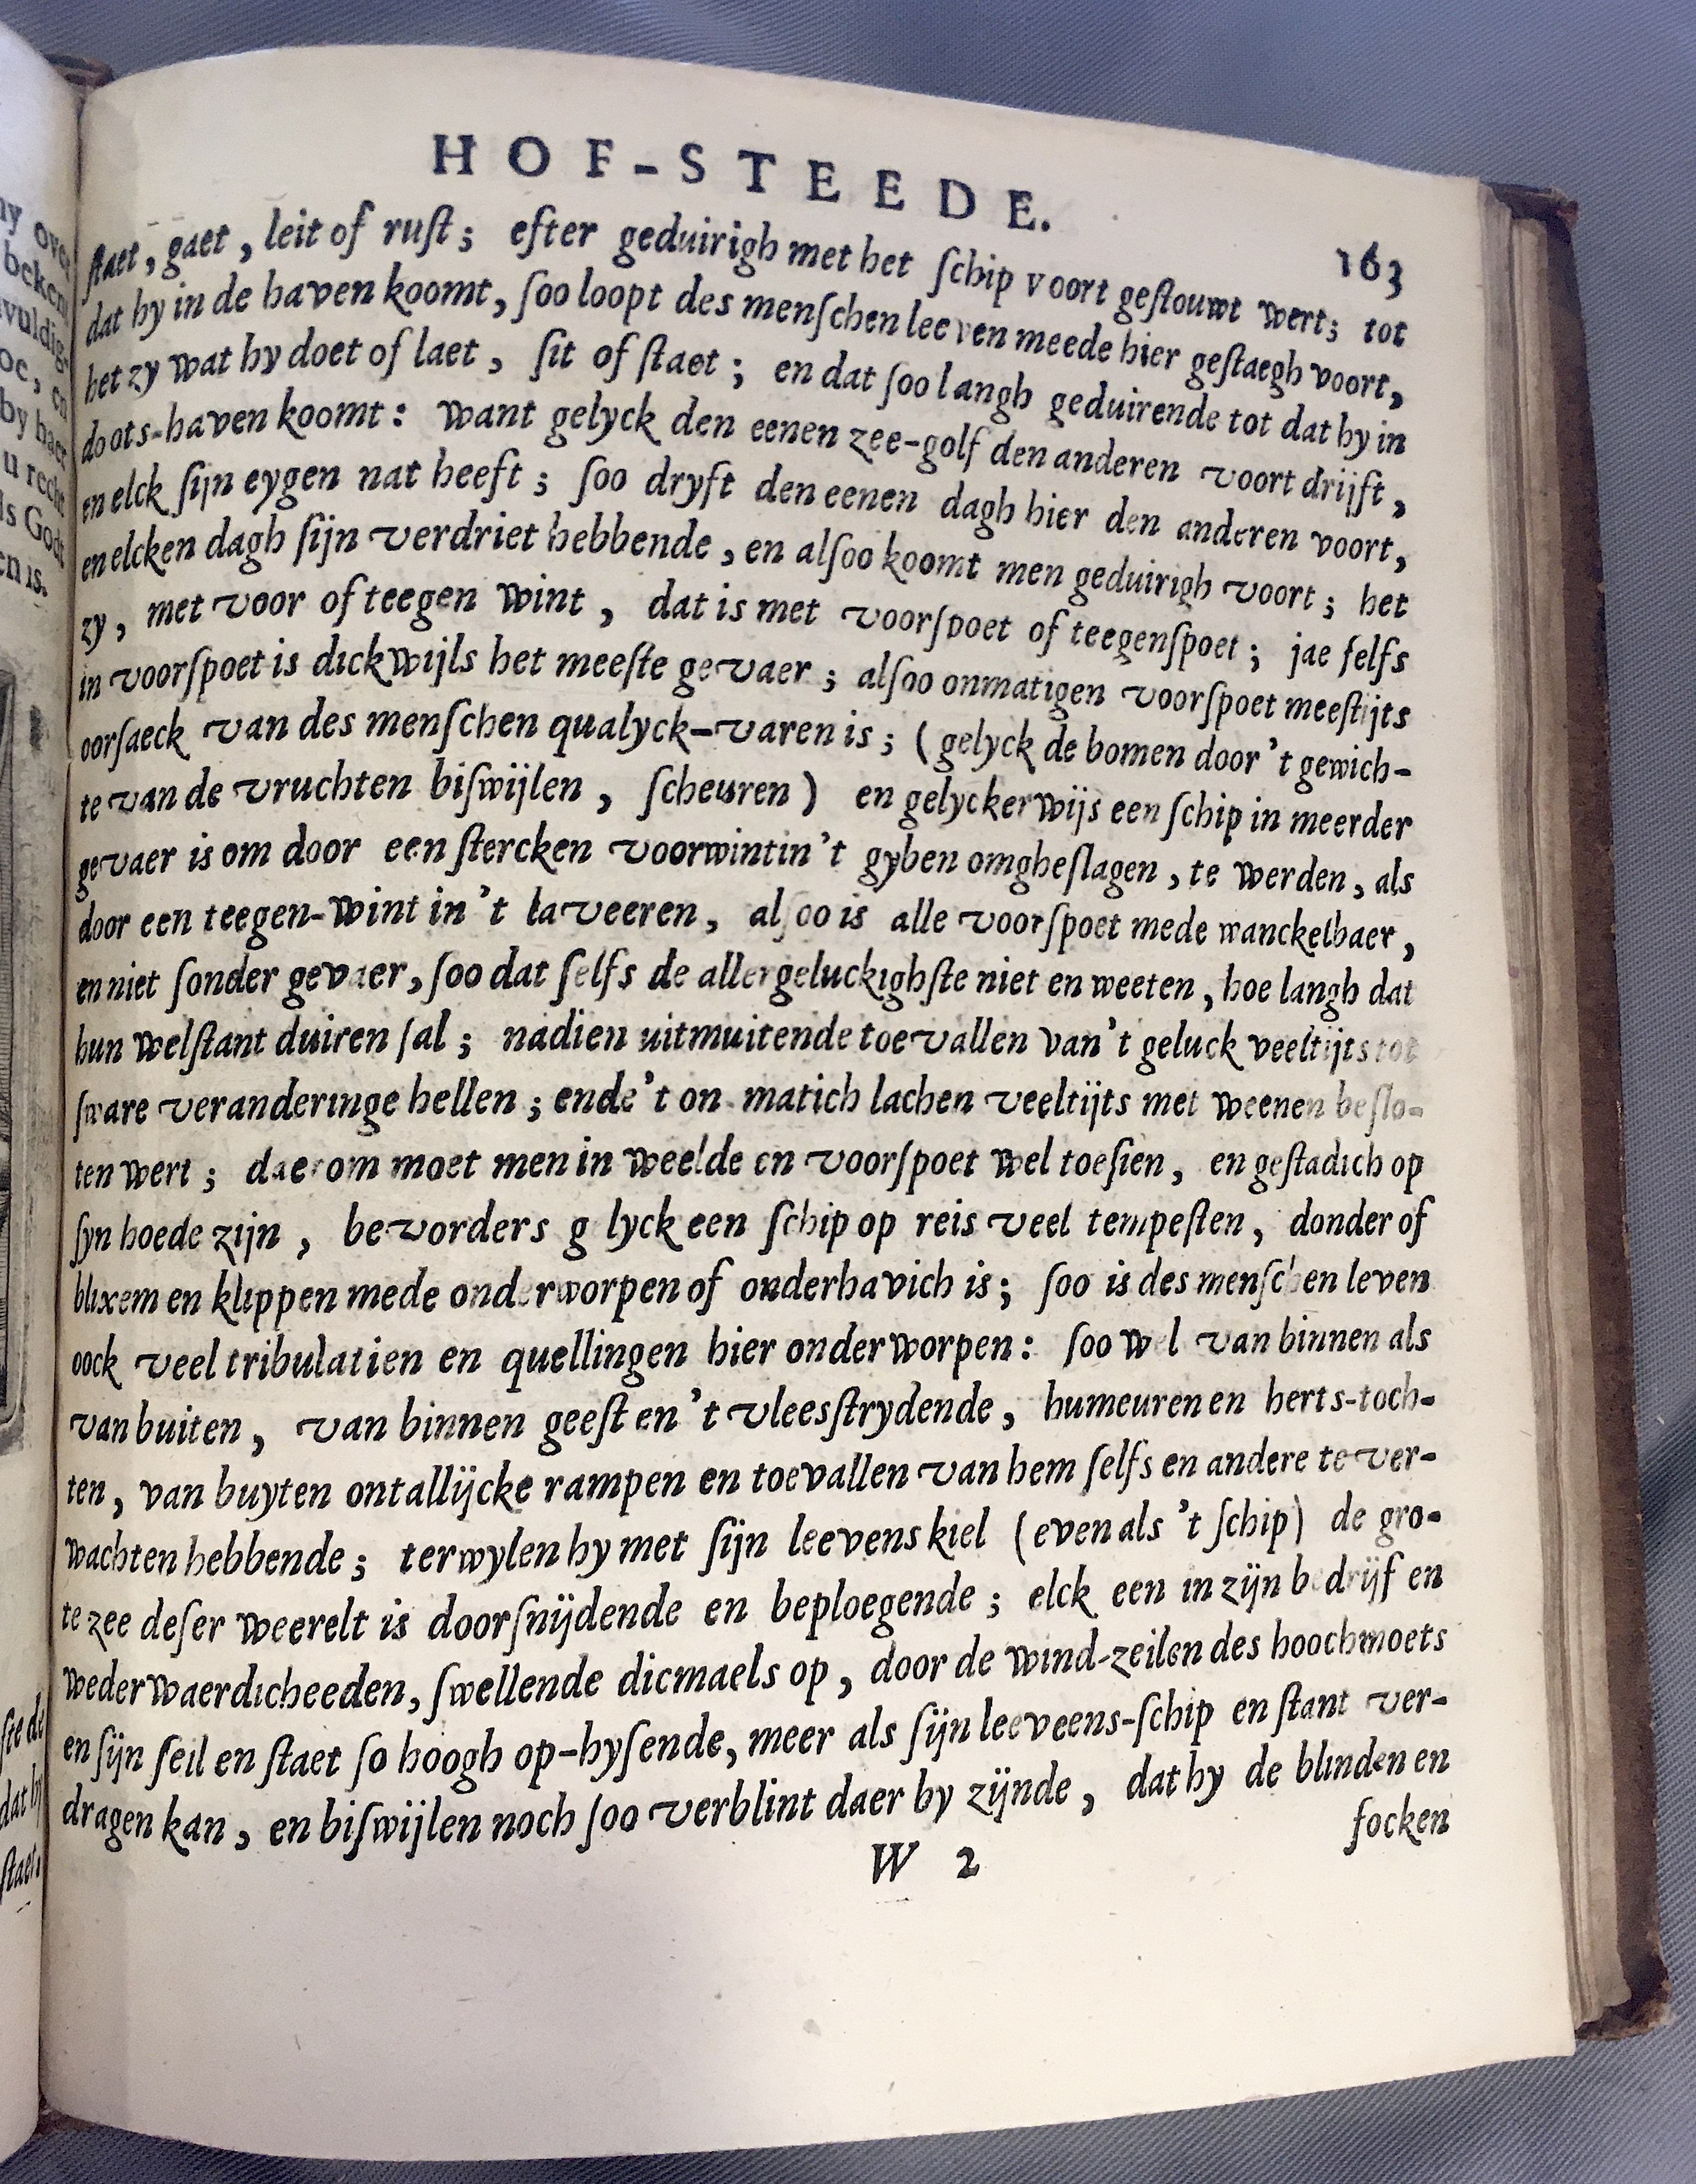 HOF-STEEDE.
163
ſtaet, gaet, leit of ruſt; efter geduirigh met het ſchip voort geſtouwt wert; tot
dat hy in de haven koomt, ſoo loopt des menſchen leeven meede hier geſtaegh voort,
het zy wat hy doet of laet, ſit of ſtaet; en dat ſoo langh geduirende tot dat hy in
doots-haven koomt: want gelyck den eenen zee-golf den anderen voort drijft,
en elck ſijn eygen nat heeft; ſoo dryft den eenen dagh hier den anderen voort,
en elcken dagh ſijn verdriet hebbende, en alſoo koomt men geduirigh voort; het
zy, met voor of teegen wint, dat is met voorſpoet of teegenſpoet; jae ſelfs
in voorſpoet is dickwijls het meeſte gevaer; alſoo onmatigen voorſpoet meeſtijts
oorſaeck van des menſchen qualyck-varen is; (gelyck de bomen door't gewich-
te van de vruchten biſwijlen, ſcheuren) en gelyckerwijs een ſchip in meerder
gevaer is om door een ſtercken voorwintin't gyben omgheſlagen, te werden, als
door een teegen-wint in't laveeren, alſoo is alle voorſpoet mede wanckelbaer,
en niet ſonder gevaer, ſoo dat ſelfs de allergeluckighſte niet en weeten, hoe langh dat
hun welſtant duiren ſal; nadien uitmuitende toevallen van't geluck veeltijts tot
ſware veranderinge hellen; ende't on-matich lachen veeltijts met weenen beſlo-
ten wert; daerom moet men in weelde en voorſpoet wel toeſien, en geſtadich op
ſyn hoede zijn, bevorders g lyck een ſchip op reis veel tempeſten, donder of
blixem en klippen mede onderworpen of onderhavich is; ſoo is des menſchen leven
oock veel tribulatien en quellingen hier onderworpen: ſoo wel van binnen als
van buiten, van binnen geeſt en't vleesſtrydende, humeuren en herts-toch-
ten, van buyten ontallijcke rampen en toevallen van hem ſelfs en andere te ver-
wachten hebbende; terwylen hy met ſijn leevens kiel (even als 't ſchip) de gro-
te zee deſer weerelt is doorſnijdende en beploegende; elck een in zijn bedrijf en
wederwaerdicheeden, ſwellende dicmaels op, door de wind-zeilen des hoochmoets
en ſijn ſeil en ſtaet ſo hoogh op-hyſende, meer als ſijn leeveens-ſchip en ſtant ver-
dragen kan, en biſwijlen noch ſoo verblint daer by zijnde, dat hy de blinden en
W 2
focken